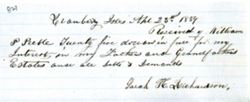 Cranberry Isles Apl 23rd 1889
Received of William
P Preble Twenty five dollars in full for my
Interest in my Father and Grandfathers
Estates once all debts & demands
Sarah H. Richardson,